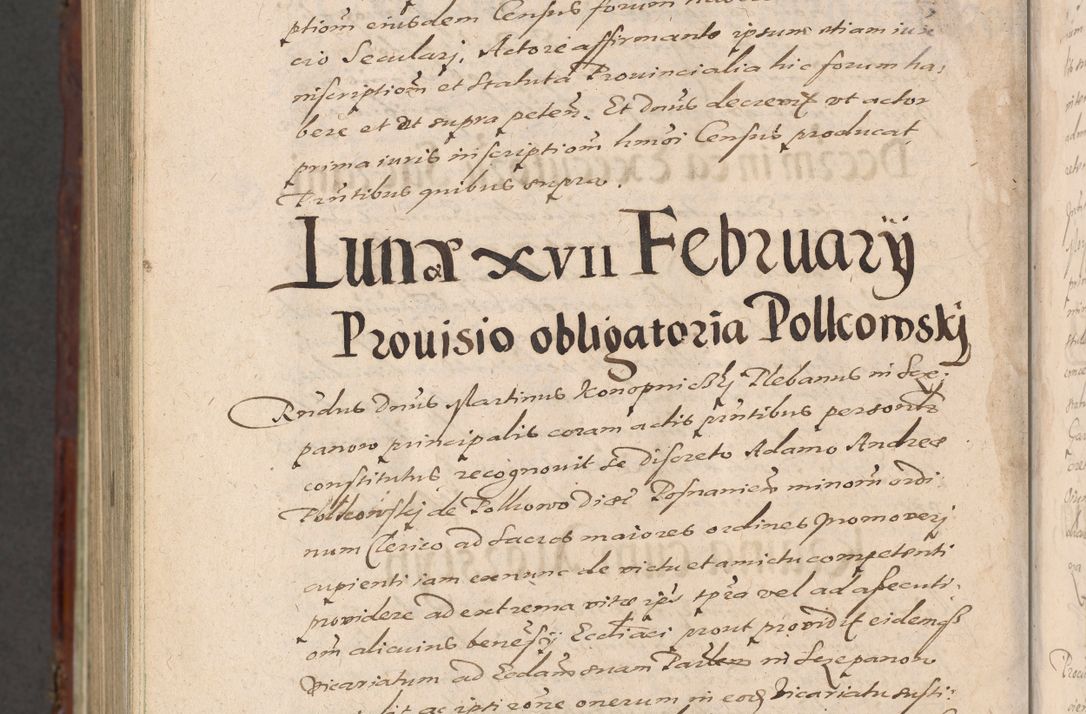 ptiom̄ eiusdem Census forum
cio Seculari, Actore affirmante ipsum etiam iux
inscriptiom̄ et Statuta Prouincialia hic forum ha,
bere et vt supra peten̄. Et Dnūs decrevit vt actor
prima iuris inscriptiom̄ hmōi Census producat
Prn̄tibus quibus supra.
Lunæ xvii February
Prouisio obligatoria Polkowskỹ
Rnđus Dnūs Martinus Konopniczkỹ Plebanus in Sce,
panow principalis coram actis prn̄tibus personlr̄
constitutus recognovit se discreto Adamo Andreæ
Polkowskj de Polkowo Diæc Posnanien̄ minorum ordi
num Clerico ad Sacros maiores ordines promoverj
cupienti iam exnunc de victu et amictu competenti
providere ad extrema vitæ ips tpr̄a vel ad assecuti,
om̄ alicuius benefȳ Eccl̄iaci prout providit eidemqʒ
Vicariatum ad Eccl̄am suam in Scepanow
ac ipti one onerum in eođ Vicariatu susti: